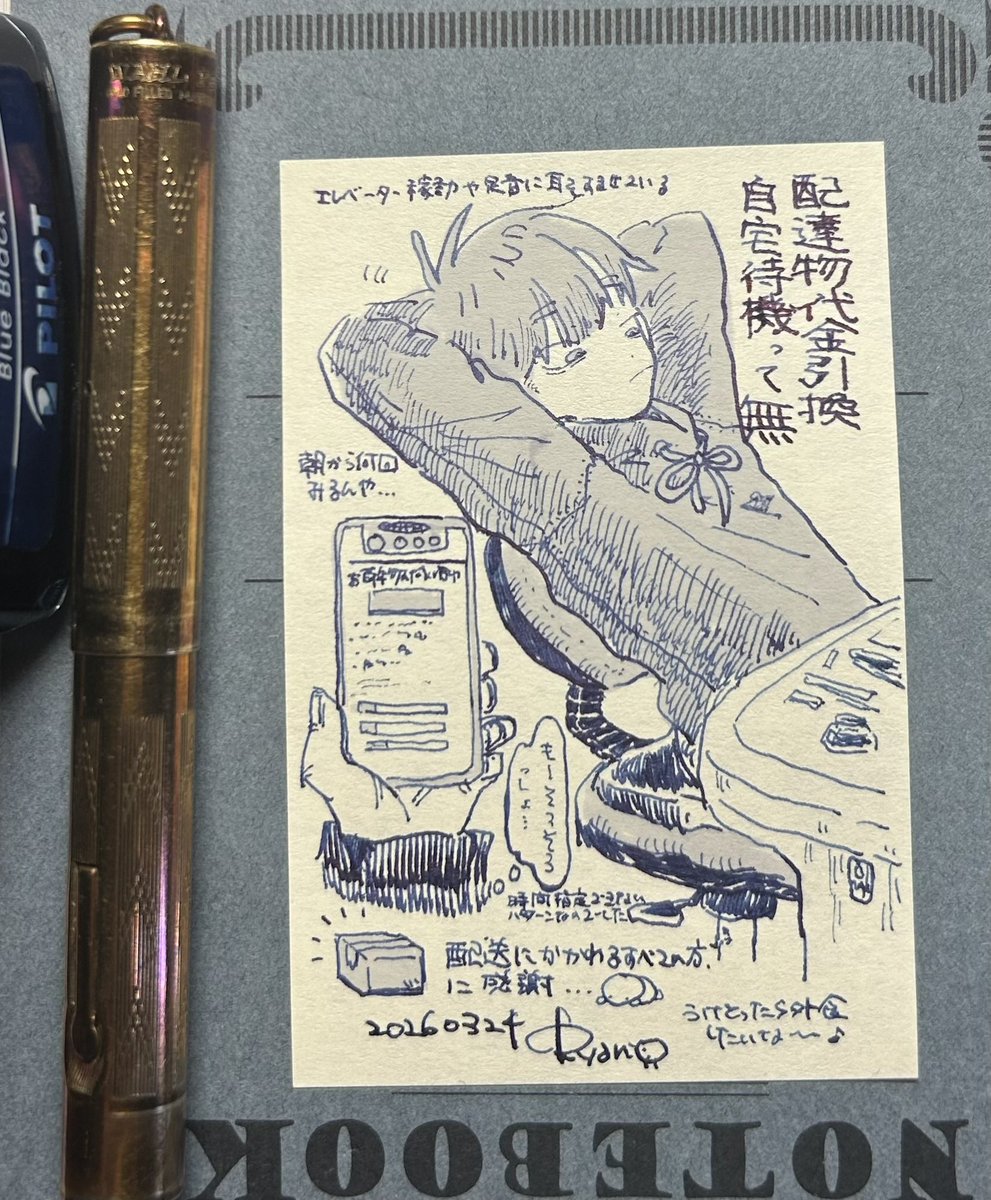 エレベーター稼動や足音に耳をすませている
配達物代金引換
自宅待機って無
朝から何回
みるんや…
もーそろそろ
っしょ…
時間指定できない
パターンなのでした
配送にかかわるすべての方、
に感謝…
20260324
うけとったら外食
したいな〜♪
WAHL
PILOT
Blue Black
NOTEBOOK